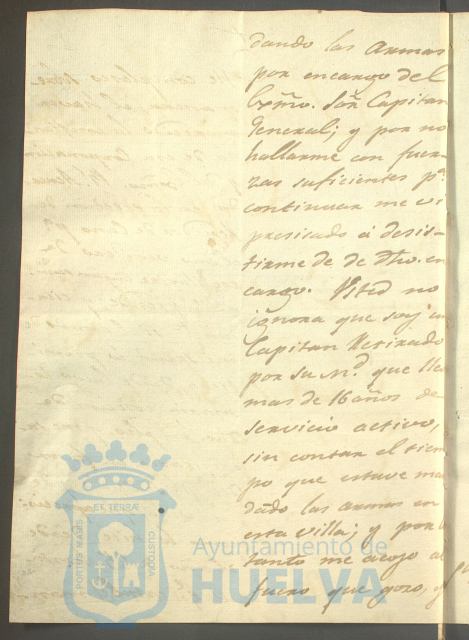 dando las Armas
por encargo del
Exmo. Señ Capitan
General; y por no
hallarme con fuer-
zas suficientes pª
continuar me vi
presisado á desis-
tirme de de dho. en
cargo. Usted no
ignora que soy un
Capitan Retirado
por su M.d que lle
mas de 16 años de
servicio activo,
sin contar el tiem
po que estuve man
dado las armas en
esta villa; y por lo
tanto me acojo al
fuero que gozo, y
PORTUS MARIS
ET TERRÆ
CUSTODIA
Ayuntamiento de
HUELVA